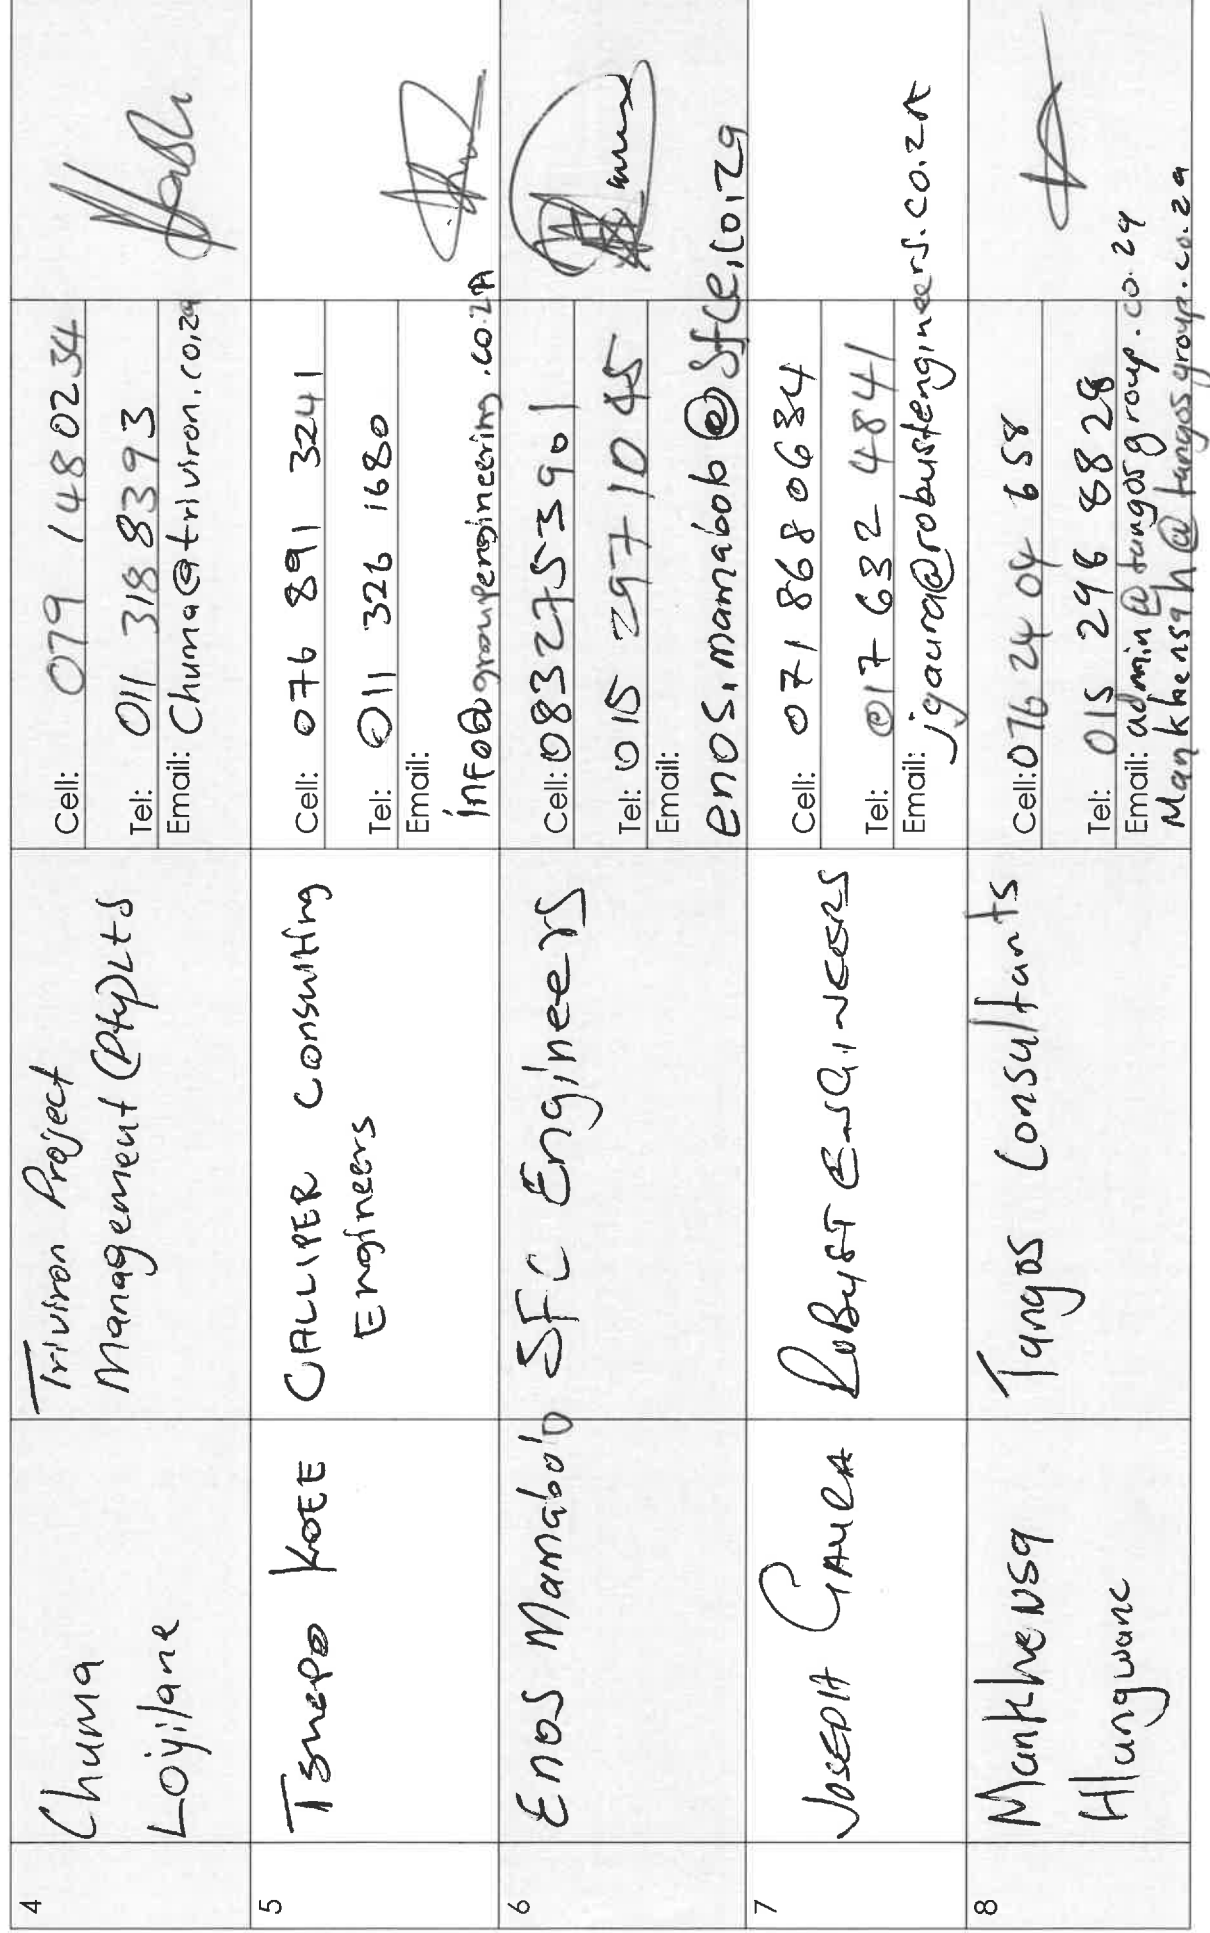 4
Chuma
Loyilane
Triviron Project
Management (Pty) Ltd
Cell: 079 148 0234
Tel: 011 318 8393
Email: Chuma@triviron.co.za
5
Tshepo KOEE
CALLIPER Consulting
Engineers
Cell: 076 891 3241
Tel: 011 326 1680
Email:
6
Enos Mamabolo
SFC Engineers
Cell: 0832753901
Tel: 015 297 10 45
Email:
enos.mamabob@sfce.co.za
7
JOSEPH GAURA
ROBUST ENGINEERS
Cell: 071 868 0634
Tel: 017 632 4841
Email:
jgaura@robustengineers.co.za
8
Mankhensa
Hlungwane
Tangos Consultants
Cell: 076 24 04 658
Tel: 015 296 8828
Email: admin@tangosgroup.co.za
Mankhensah@tangosgroup.co.za